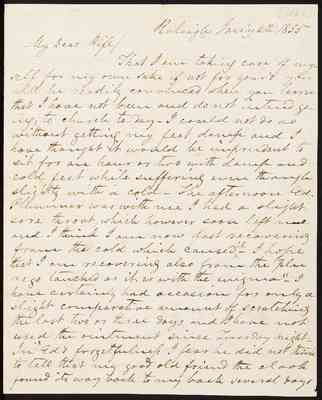 Raleigh Jan'y 1855
My Dear Wife/
That I am taking care of my
self for my own sake if not for yours you
will be readily convinced when you learn
that I have not been and do not intend go
ing to church to day. I could not do so
without getting my feet damp and I
have thought it would be imprudent to
sit for an hour or two with damp and
cold feet while suffering even though
slightly with a cold. The afternoon Ed.
Plummer was with me I had a slight
sore throat which however soon left me
and I think I am now fast recovering
from the cold which caused it. I hope
that I am recovering also from the
as it is with the
have certainly had occasion for only a
slight comparative amount of scratching
the last two or three days and have not
used the ointment since Tuesday night.
In Ed's forgetfulness I fear he did not think
to tell that my good old friend the cloak
found its way back to my back several days